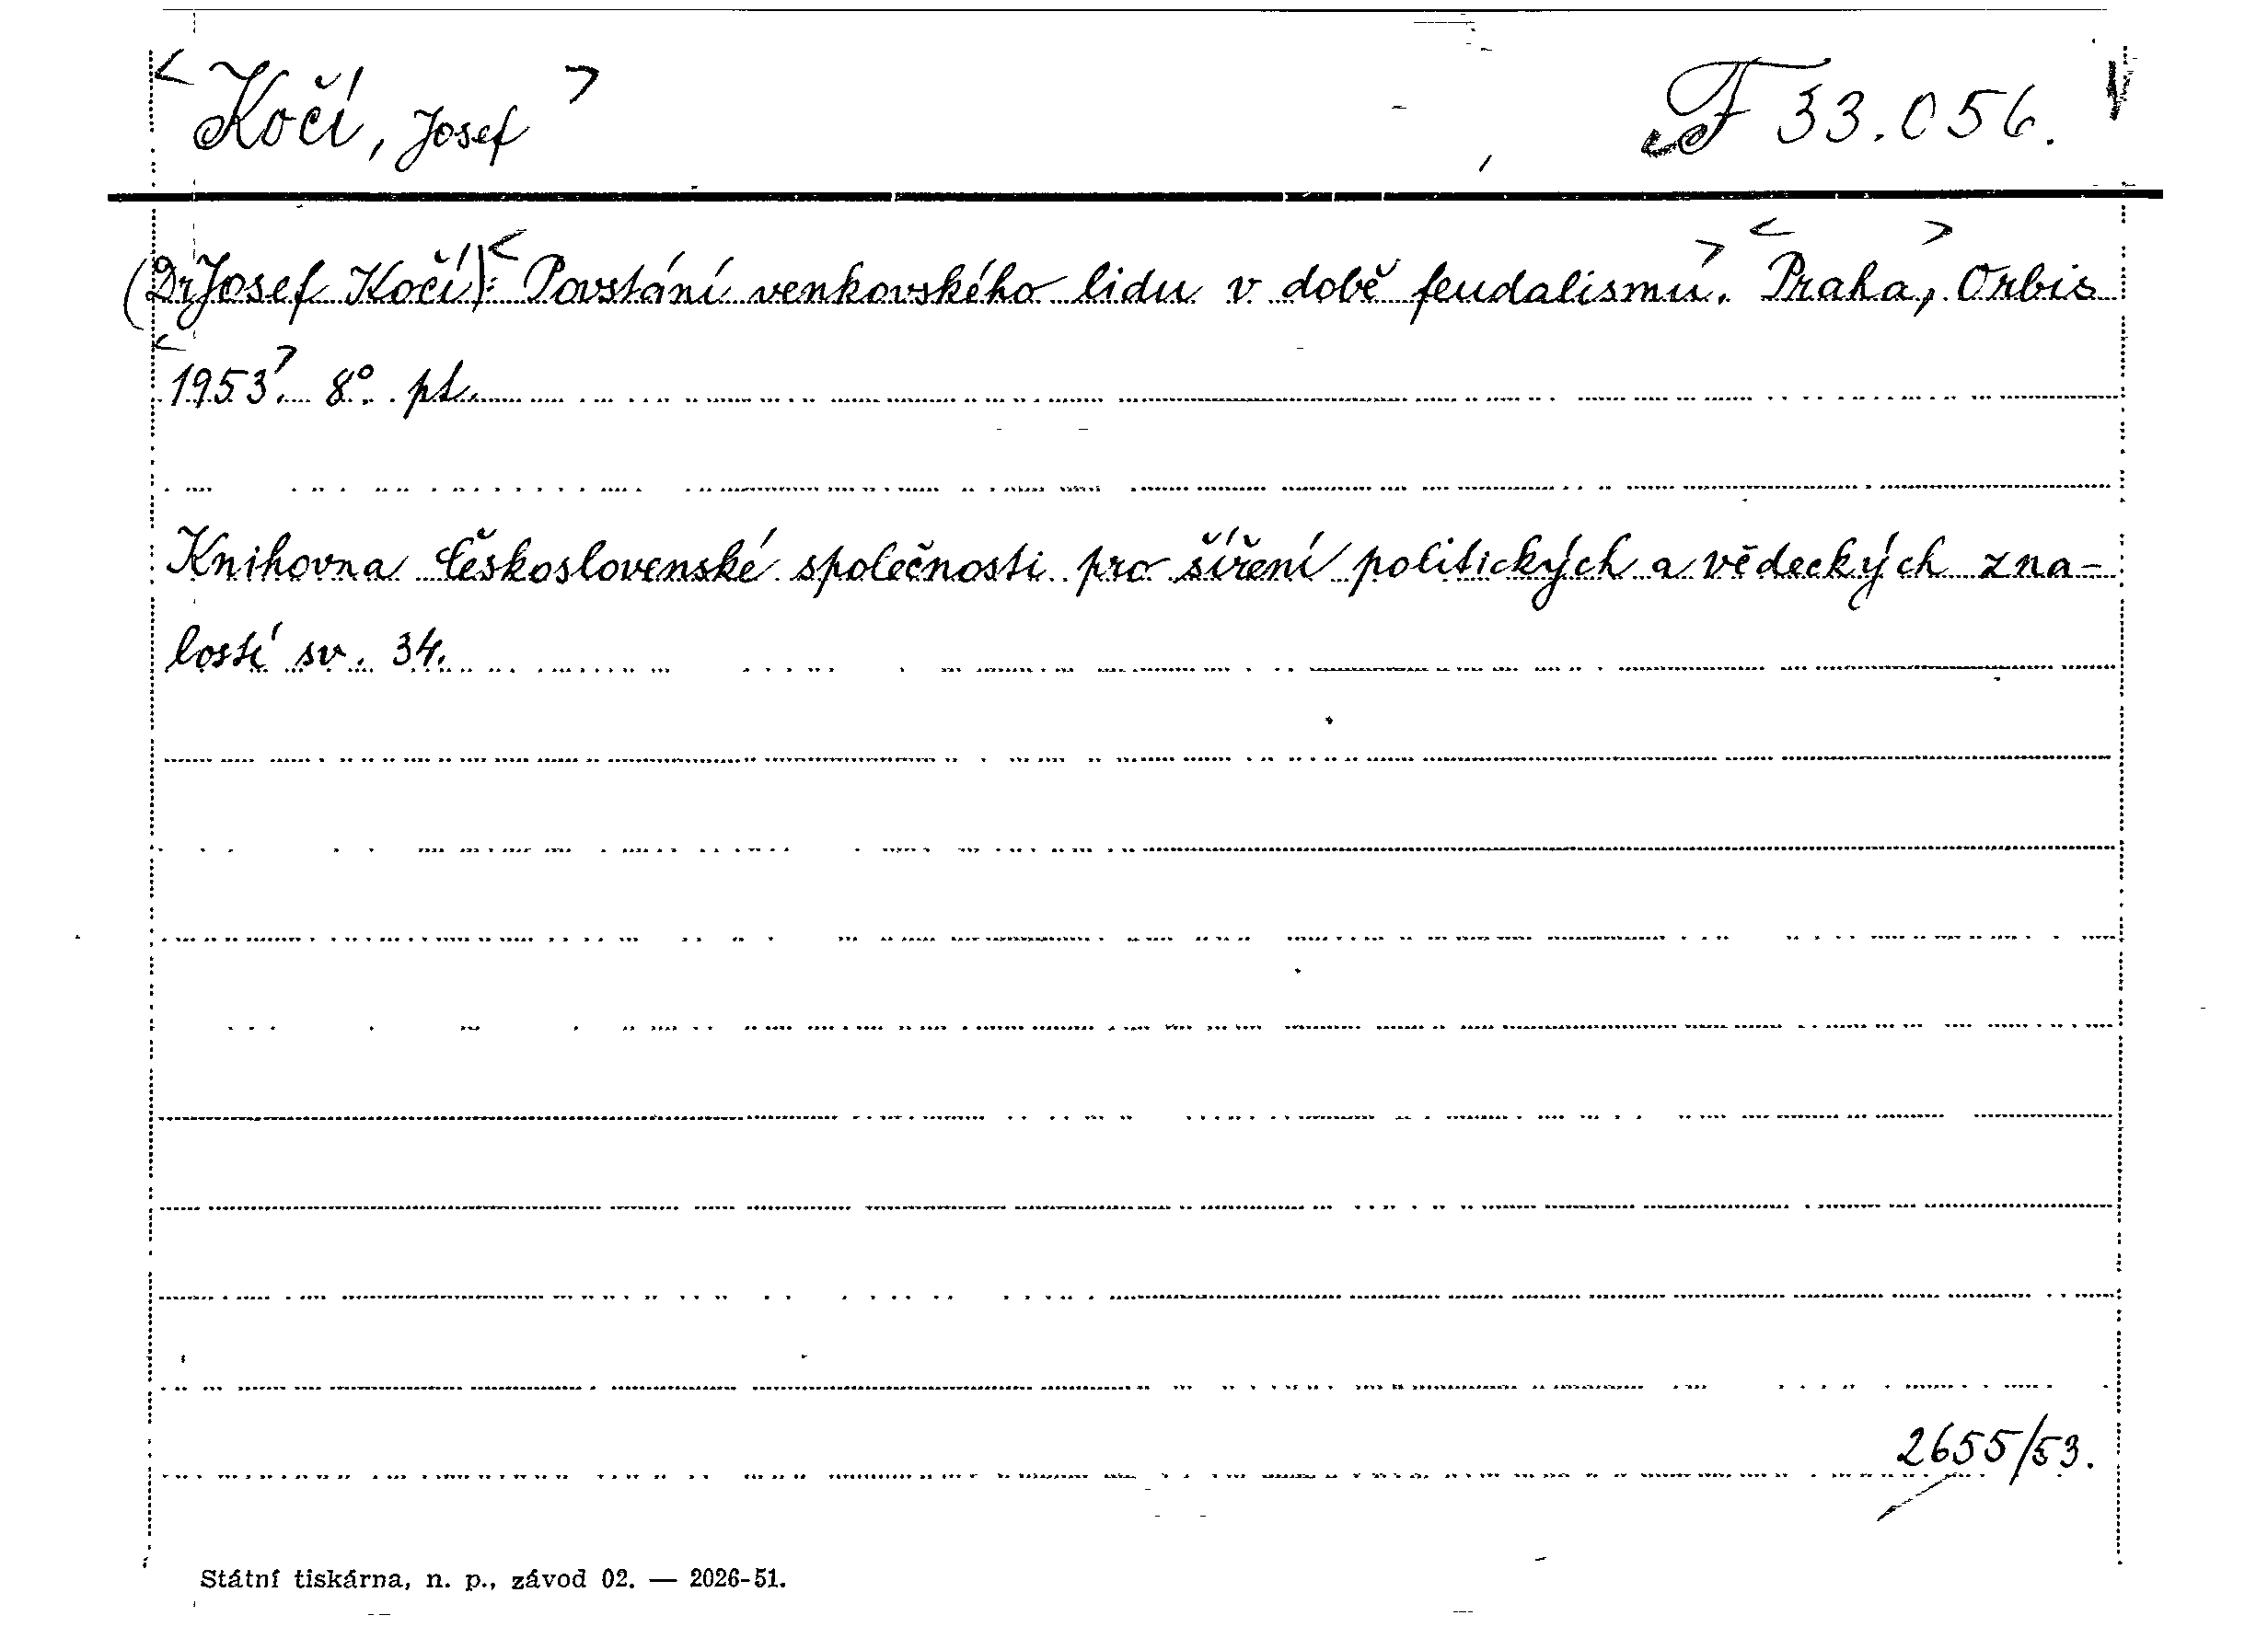 < Kočí, Josef > F 33.056.
(Dr Josef Kočí): < Povstání venkovského lidu v době feudalismu. > < Praha, > Orbis
< 1953. > 8°. pt.
Knihovna Československé společnosti pro šíření politických a vědeckých zna-
lostí sv. 34.
2655/53.
Státní tiskárna, n. p., závod 02. — 2026-51.